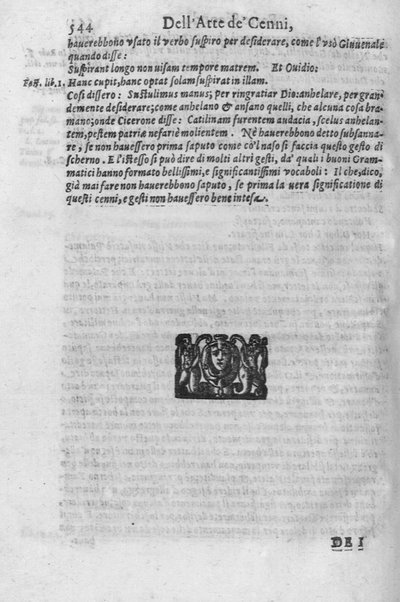 544 Dell'Arte de' Cenni,
hauerebbono vsato il verbo suspiro per desiderare, come l'vsò Giuuenale
quando disse:
Suspirant longo non uisam tempore matrem. Et Ouidio:
Fast. lib. 1. Hanc cupit, hanc optat solam suspirat in illam.
Così dissero: Sustulimus manus; per ringratiar Dio: anhelare, per gran-
demente desiderare; come anhelano & ansano quelli, che alcuna cosa bra-
mano; onde Cicerone disse: Catilinam furentem audacia, scelus anhelan-
tem, pestem patriæ nefariè molientem. Nè hauerebbono detto subsanna-
re, se non hauessero prima saputo come co'l naso si faccia questo gesto di
scherno. E l'istesso si può dire di molti altri gesti, da' quali i buoni Gram-
matici hanno formato bellissimi, e significantissimi vocaboli: Il che, dico,
già mai fare non hauerebbono saputo, se prima la uera significatione di
questi cenni, e gesti non hauessero bene intesa.
DE I